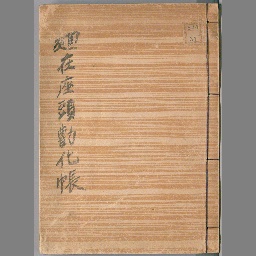 廻在座頭勧化帳